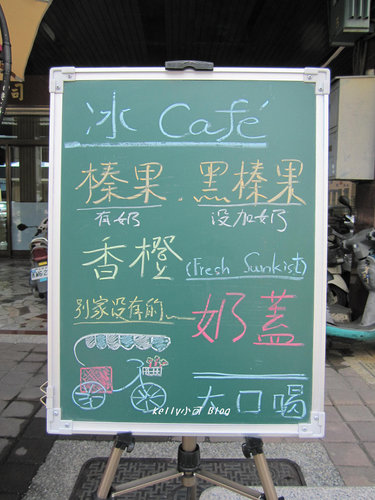 司
冰 Café
榛果.黑榛果
有奶 沒加奶
香橙 (Fresh Sunkist)
別家沒有的~ 奶蓋
大口喝
Kelly小可 Blog